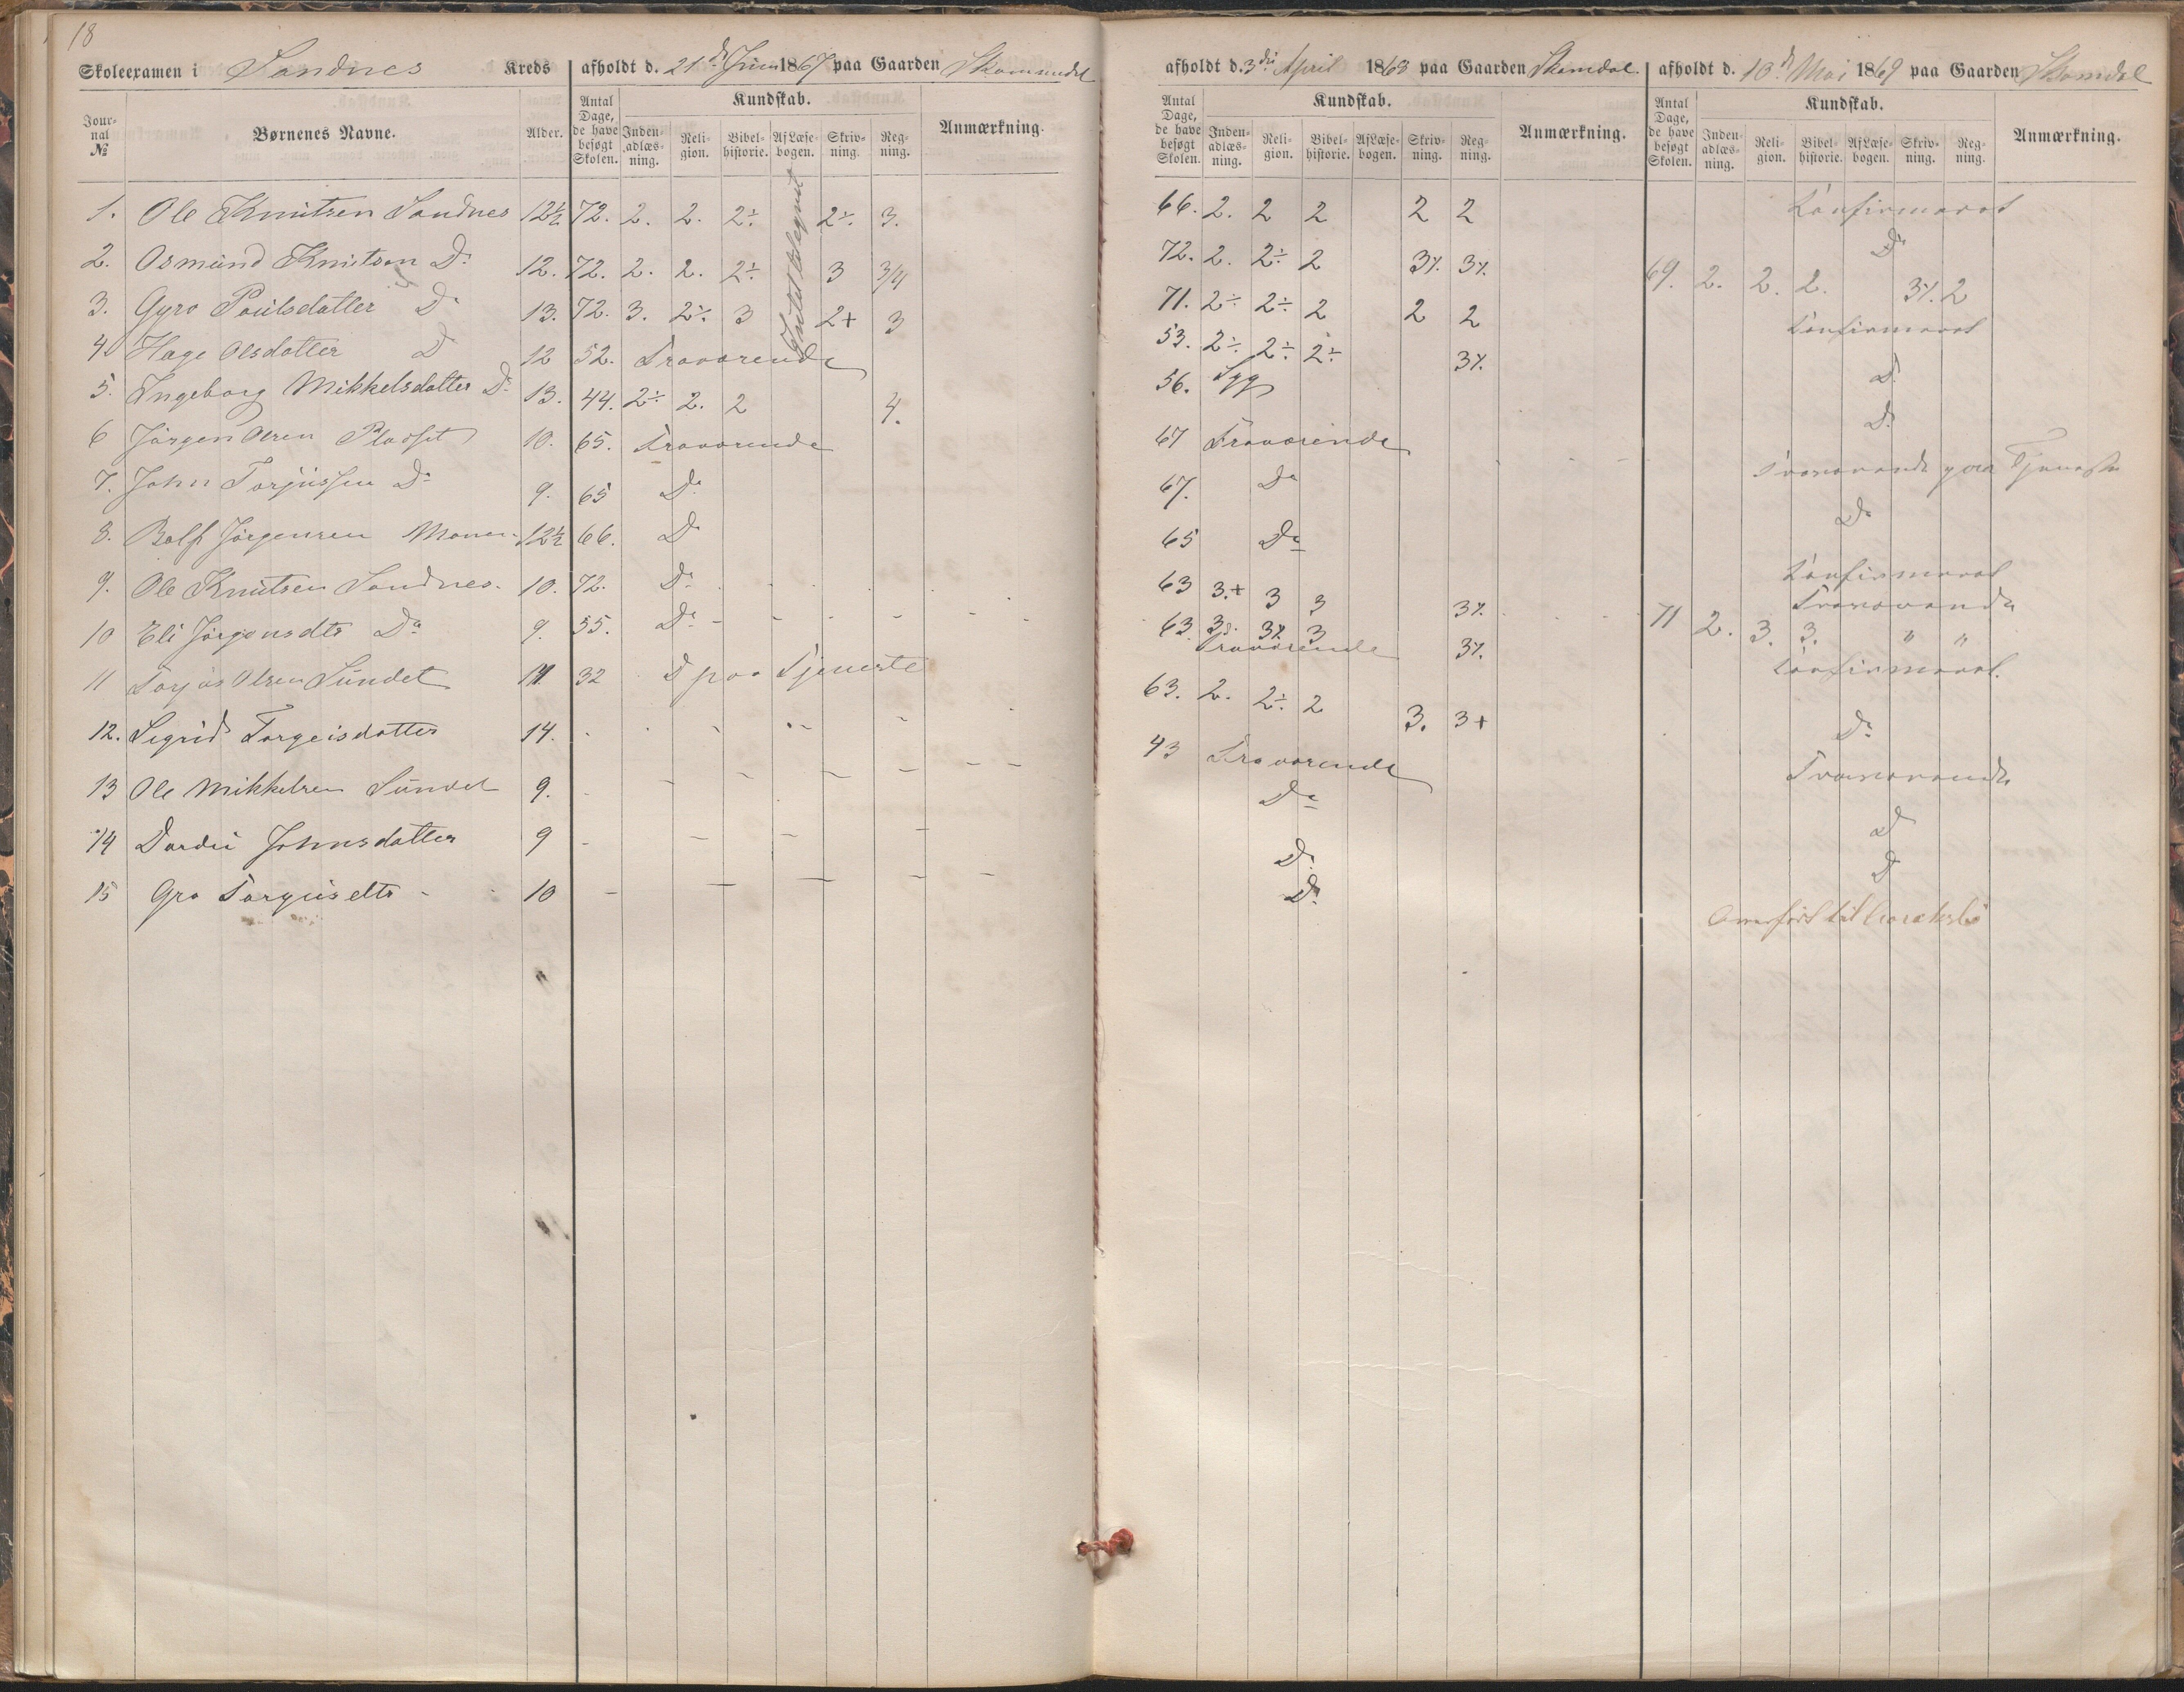 18
Skoleexamen i Sandnes Kreds afholdt d. 21de Juni 1867 paa Gaarden Skomendal
Jour-nal № Børnenes Navne. Alder. Antal Dage, de have besøgt Skolen. Kundskab. Inden-adlæs-ning. Reli-gion. Bibel-historie. Af Læse-bogen. Skriv-ning. Reg-ning. Anmærkning.
1. Ole Knutsen Sandnes 12½ 72. 2. 2. 2÷ 2÷. 3.
2. Osmund Knutson Do 12. 72. 2. 2. 2÷ 3 3/4
3. Gyro Paulsdatter Do 13. 72. 3. 2÷ 3 2+ 3
4 Hage Olsdatter D 12 52. Fraværende
5. Ingeborg Mikkelsdatter Do 13. 44. 2÷ 2. 2 4.
6 Jørgen Olsen 10. 65. Fraværende
7. John Torjussen Do 9. 65 Do
8. Rolf Jørgensen Monen 12½ 66. D
9. Ole Knutsen Sandnes. 10. 72. Do
10 Eli Jørgensdtr Do 9. 55. Do - - - -
11 Torjus Olsen Sundet 11. 32 D paa Tjeneste
12. Sigrid Torgeisdatter 14.
13 Ole Mikkelsen Sundet 9.
14 Dordei Johnsdatter 9
15 Gro Torguisdtr - 10
afholdt d. 3die April 1868 paa Gaarden Skomdal.
Antal Dage, de have besøgt Skolen. Kundskab. Inden-adlæs-ning. Reli-gion. Bibel-historie. Af Læse-bogen. Skriv-ning. Reg-ning. Anmærkning.
66. 2. 2 2 2 2
72. 2. 2÷ 2 3⁒ 3⁒
71. 2÷ 2÷ 2 2 2
53. 2÷. 2÷ 2÷ 3⁒.
56. Syg
67 Fraværende
67. Do
65 Do
63 3.+ 3 3 3⁒
63. 3. 3⁒ 3 3⁒.
Fraværende
63. 2. 2÷. 2 3. 3+
43 Fraværende
Do
Do
Do
afholdt d. 10d Mai 1869 paa Gaarden Skomdal
Antal Dage, de have besøgt Skolen. Kundskab. Inden-adlæs-ning. Reli-gion. Bibel-historie. Af Læse-bogen. Skriv-ning. Reg-ning. Anmærkning.
Konfirmeret
Do
69. 2. 2. 2. 3⁒. 2
Konfirmeret
Do
Do
Fraværende paa Tjeneste
Do
Konfirmeret
Fraværende
71 2. 3. 3. " "
Konfirmeret.
Do
Fraværende
D
D
Overført til